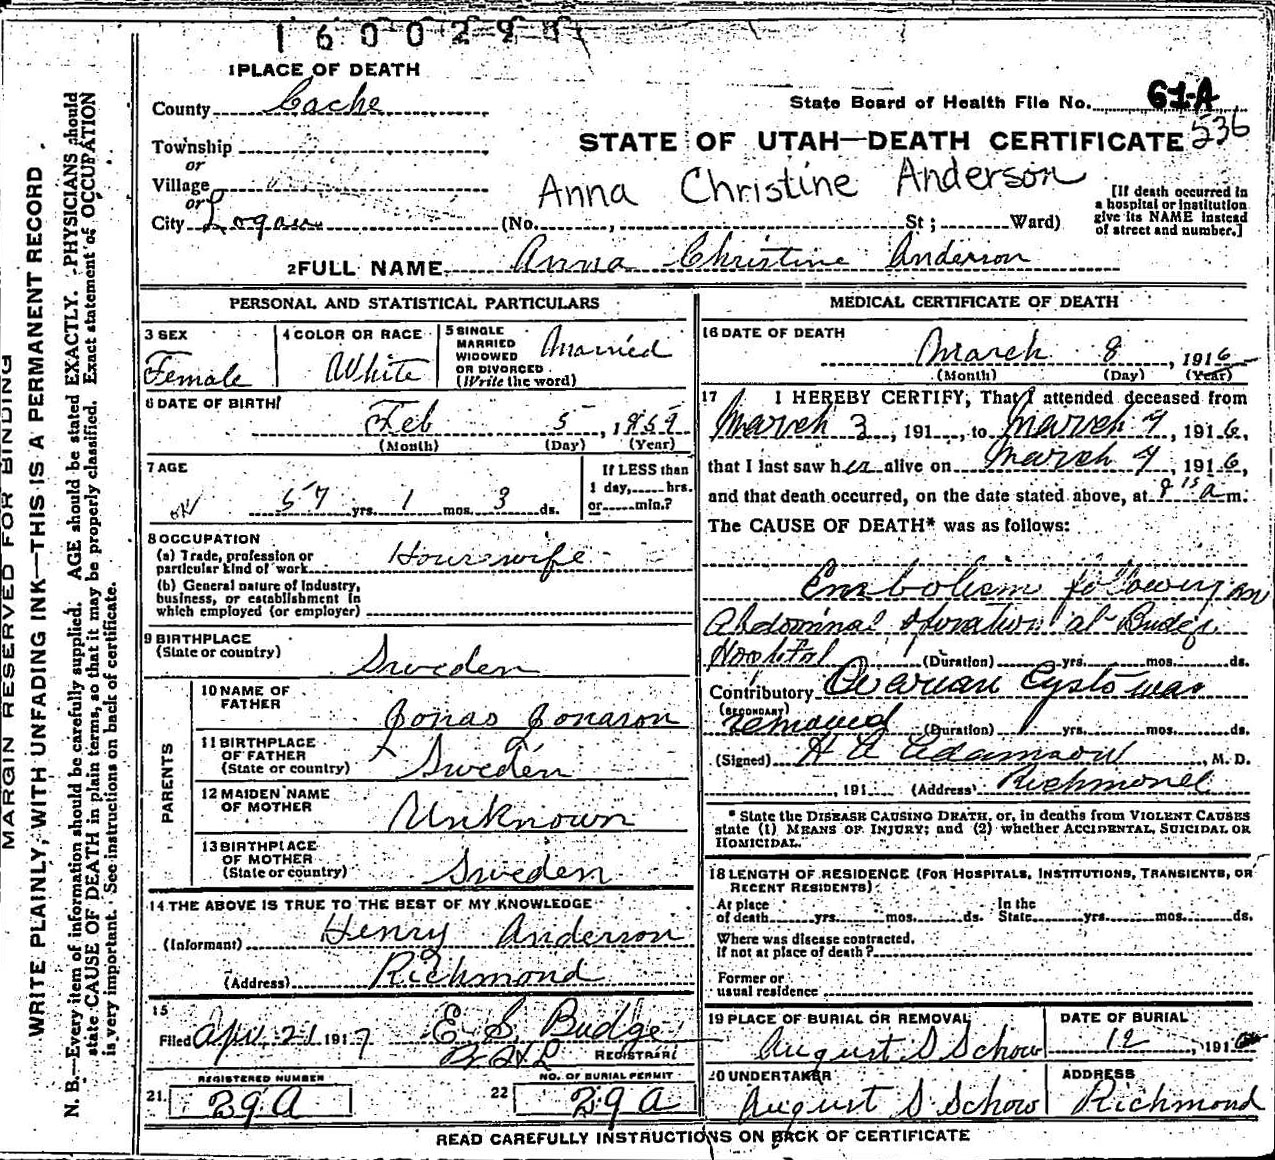 1600290
1 PLACE OF DEATH
County Cache
State Board of Health File No. 61-A
536
Township
or
STATE OF UTAH—DEATH CERTIFICATE
Village
or
Anna Christine Anderson
[If death occurred in
a hospital or institution
give its NAME instead
of street and number.]
City Logan (No. , St; Ward)
2 FULL NAME Anna Christine Anderson
PERSONAL AND STATISTICAL PARTICULARS
3 SEX
Female
4 COLOR OR RACE
White
5 SINGLE
MARRIED
WIDOWED
OR DIVORCED
(Write the word)
Married
6 DATE OF BIRTH
Feb 5, 1859
(Month) (Day) (Year)
7 AGE
57 yrs. 1 mos. 3 ds.
If LESS than
1 day, hrs.
or min.?
8 OCCUPATION
(a) Trade, profession or
particular kind of work Housewife
(b) General nature of industry,
business, or establishment in
which employed (or employer)
9 BIRTHPLACE
(State or country) Sweden
PARENTS
10 NAME OF
FATHER Jonas Jonason
11 BIRTHPLACE
OF FATHER
(State or country) Sweden
12 MAIDEN NAME
OF MOTHER Unknown
13 BIRTHPLACE
OF MOTHER
(State or country) Sweden
14 THE ABOVE IS TRUE TO THE BEST OF MY KNOWLEDGE
(Informant) Henry Anderson
(Address) Richmond
15
Filed Apr 21 1917 E S Budge
REGISTRAR
REGISTERED NUMBER
21. 29A
NO. OF BURIAL PERMIT
22 29A
MEDICAL CERTIFICATE OF DEATH
16 DATE OF DEATH
March 8, 1916
(Month) (Day) (Year)
17 I HEREBY CERTIFY, That I attended deceased from
March 3, 191 , to March 7, 1916,
that I last saw her alive on March 7, 1916,
and that death occurred, on the date stated above, at 8 15 a m.
The CAUSE OF DEATH* was as follows:
Embolism following an
Abdominal operation at Budge
Hospital (Duration) yrs. mos. ds.
Contributory Ovarian Cysts was
(SECONDARY)
removed (Duration) yrs. mos. ds.
(Signed) H A Adamson, M. D.
, 191 (Address) Richmond
* State the DISEASE CAUSING DEATH, or, in deaths from VIOLENT CAUSES
state (1) MEANS OF INJURY; and (2) whether ACCIDENTAL, SUICIDAL OR
HOMICIDAL.
18 LENGTH OF RESIDENCE (FOR HOSPITALS, INSTITUTIONS, TRANSIENTS, OR
RECENT RESIDENTS)
At place In the
of death yrs. mos. ds. State yrs. mos. ds.
Where was disease contracted,
if not at place of death?
Former or
usual residence
19 PLACE OF BURIAL OR REMOVAL
August S Schow
DATE OF BURIAL
12, 191
20 UNDERTAKER
August S Schow
ADDRESS
Richmond
READ CAREFULLY INSTRUCTIONS ON BACK OF CERTIFICATE
MARGIN RESERVED FOR BINDING
WRITE PLAINLY, WITH UNFADING INK—THIS IS A PERMANENT RECORD.
N. B.—Every item of information should be carefully supplied. AGE should be stated EXACTLY. PHYSICIANS should
state CAUSE OF DEATH in plain terms, so that it may be properly classified. Exact statement of OCCUPATION
is very important. See instructions on back of certificate.